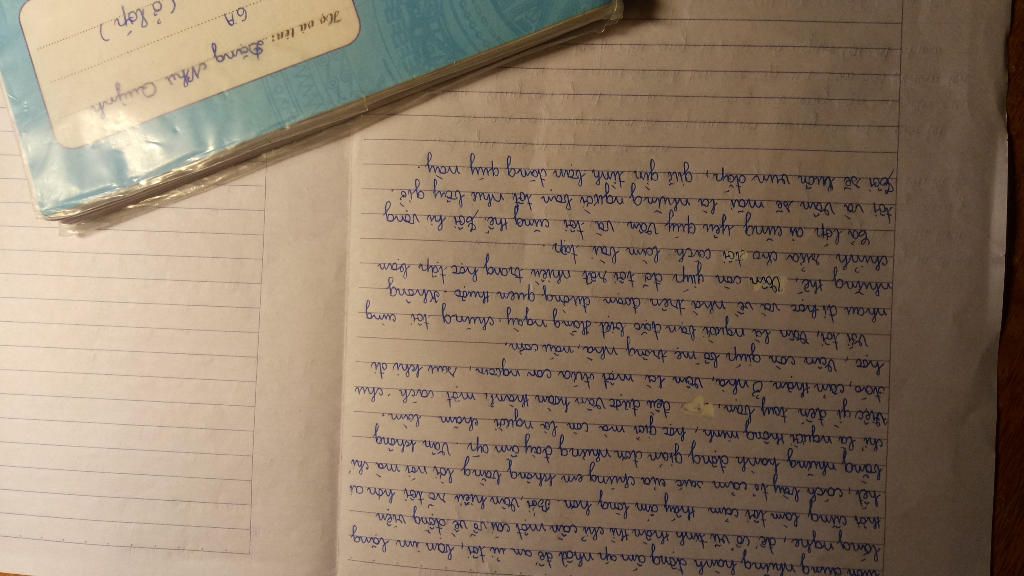 Họ và tên: Đặng Như Quỳnh
6A
(ở lớp)
dùng những hành động ấm áp nhất để an ủi tôi, bạn im lặng
lắng nghe, để cổ vũ tinh thần thì chỉ cần một cái vỗ về động viên
thôi cũng làm tôi cảm thấy ấm lòng hơn. Bởi, Vân hiểu rõ tôi hơn ai
hết, cách bày tỏ cảm xúc của chúng em không bằng lời nói mà chỉ
bằng những hành động giản đơn nhưng đầy ấm áp. Vân không
chỉ là người thông minh, học giỏi mà còn là người chăm làm.
Việc gì đến tay bạn đều được Vân hoàn thành một cách chu
đáo, cẩn thận. Ở nhà, Vân là một đứa con ngoan, sau khi đi
học, Vân còn giúp bố mẹ trông nhà, nấu cơm.
Với tôi, Vân là người bạn đặc biệt. Hằng ngày, chúng tôi cùng
nhau đi học và về nhà trên đoạn đường quen thuộc. Không
những thế, Vân còn giúp đỡ tôi rất nhiều trong học tập, bạn
chỉnh sửa cho tôi cách làm bài tập.
Cả lớp ai cũng yêu quý Vân và tôi cũng thế. Tôi hi vọng
tôi và Vân sẽ mãi là những người bạn tốt như bây giờ.
Tôi sẽ luôn vun đắp, giữ gìn tình bạn đáng quý này.